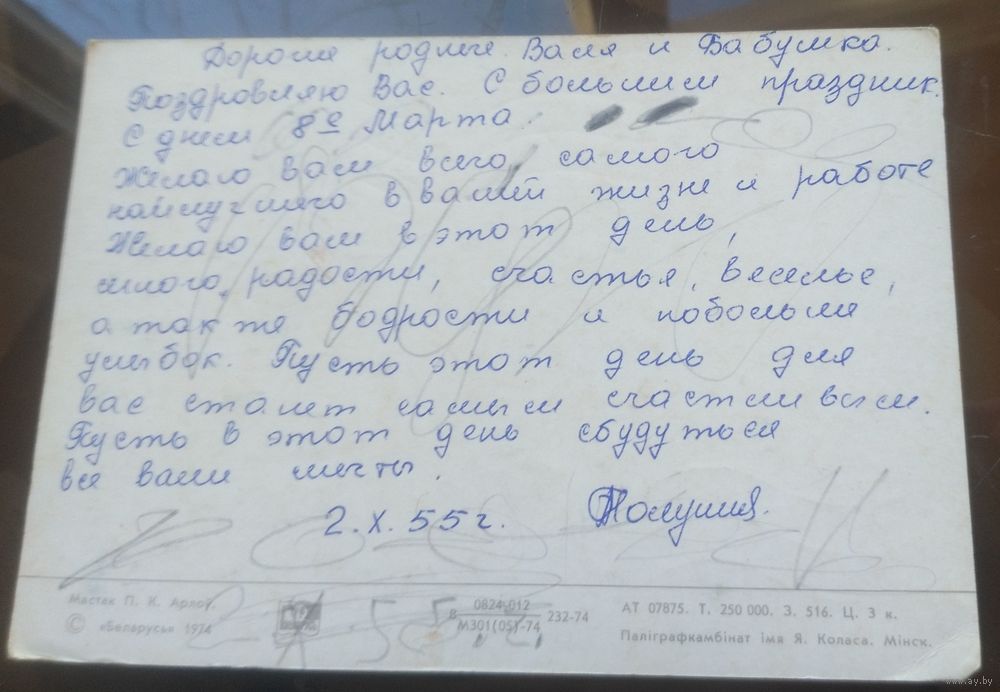 Дорогие родные Валя и Бабушка.
Поздровляю Вас. С большим праздник.
С днем 8ое Марта.
Желаю вам всего самого
наилучшего в вашей жизне и работе
Желаю вам в этот день,
много радости, счастья, веселье,
а так же бодрости и побольше
улыбок. Пусть этот день для
вас станет самым счастливым.
Пусть в этот день сбудуться
все ваши мечты.
2.X.55г.
Мастак П. К. Арлоў.
© «Беларусь» 1974
В 0824-012
М301(05)-74 232-74
АТ 07875. Т. 250 000. З. 516. Ц. 3 к.
Паліграфкамбінат імя Я. Коласа. Мінск.
www.ay.by